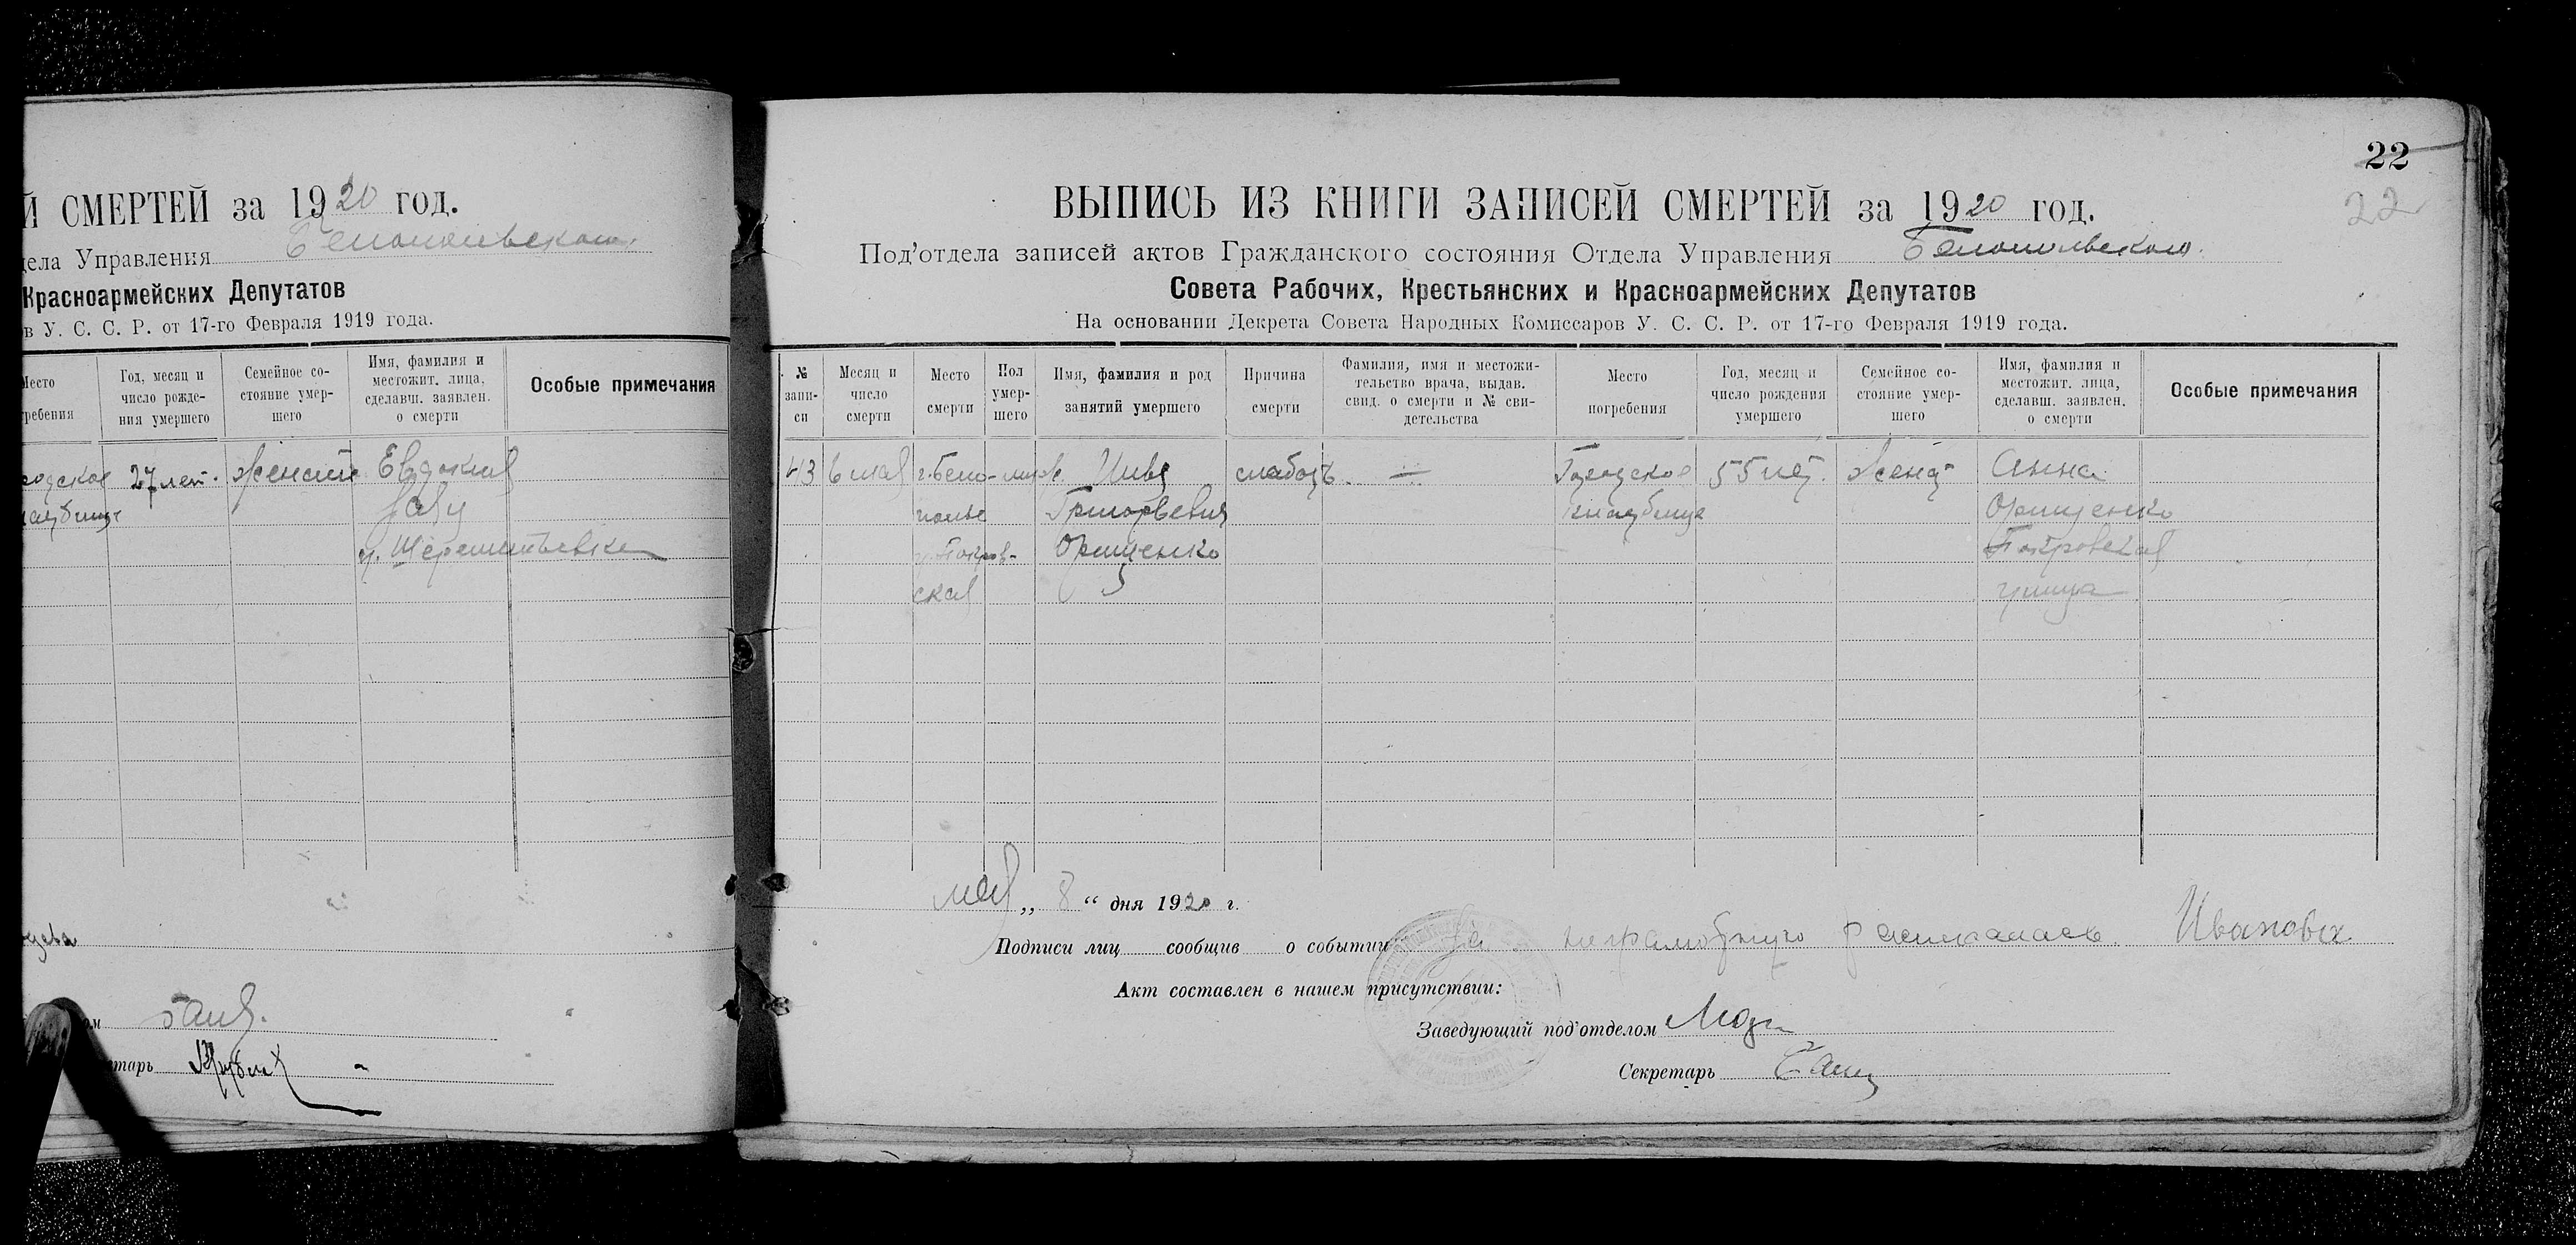 Й СМЕРТЕЙ за 1920 год.
дела Управления Белопольского.
Красноармейских Депутатов
ов У. С. С. Р. от 17-го Февраля 1919 года.
Место
гребения
Год, месяц и
число рожде-
ния умершего
Семейное со-
стояние умер-
шего
Имя, фамилия и
местожит. лица,
сделавш. заявлен.
о смерти
Особые примечания
родское
кладбище
27 лет.
Евдокия
ом
етарь
22
22
ВЫПИСЬ ИЗ КНИГИ ЗАПИСЕЙ СМЕРТЕЙ за 1920 год.
Под'отдела записей актов Гражданского состояния Отдела Управления Белопольского.
Совета Рабочих, Крестьянских и Красноармейских Депутатов
На основании Декрета Совета Народных Комиссаров У. С. С. Р. от 17-го Февраля 1919 года.
№
запи-
си
Месяц и
число
смерти
Место
смерти
Пол
умер-
шего
Имя, фамилия и род
занятий умершего
Причина
смерти
Фамилия, имя и местожи-
тельство врача, выдав.
свид. о смерти и № сви-
детельства
Место
погребения
Год, месяц и
число рождения
умершего
Семейное со-
стояние умер-
шего
Имя, фамилия и
местожит. лица,
сделавш. заявлен.
о смерти
Особые примечания
43
6 мая
г. Бело-
полье
у. Покров-
ская
муж.
Илья
Григорьевич
Орищенко
слабость
—
Городское
кладбище
55 лет.
женат
Анна
Орищенко
Покровская
улица
мая „ 8 “ дня 1920 г.
Подписи лиц сообщив о событии За неграмотную расписалась Иванова
Акт составлен в нашем присутствии:
Заведующий под'отделом
Секретарь